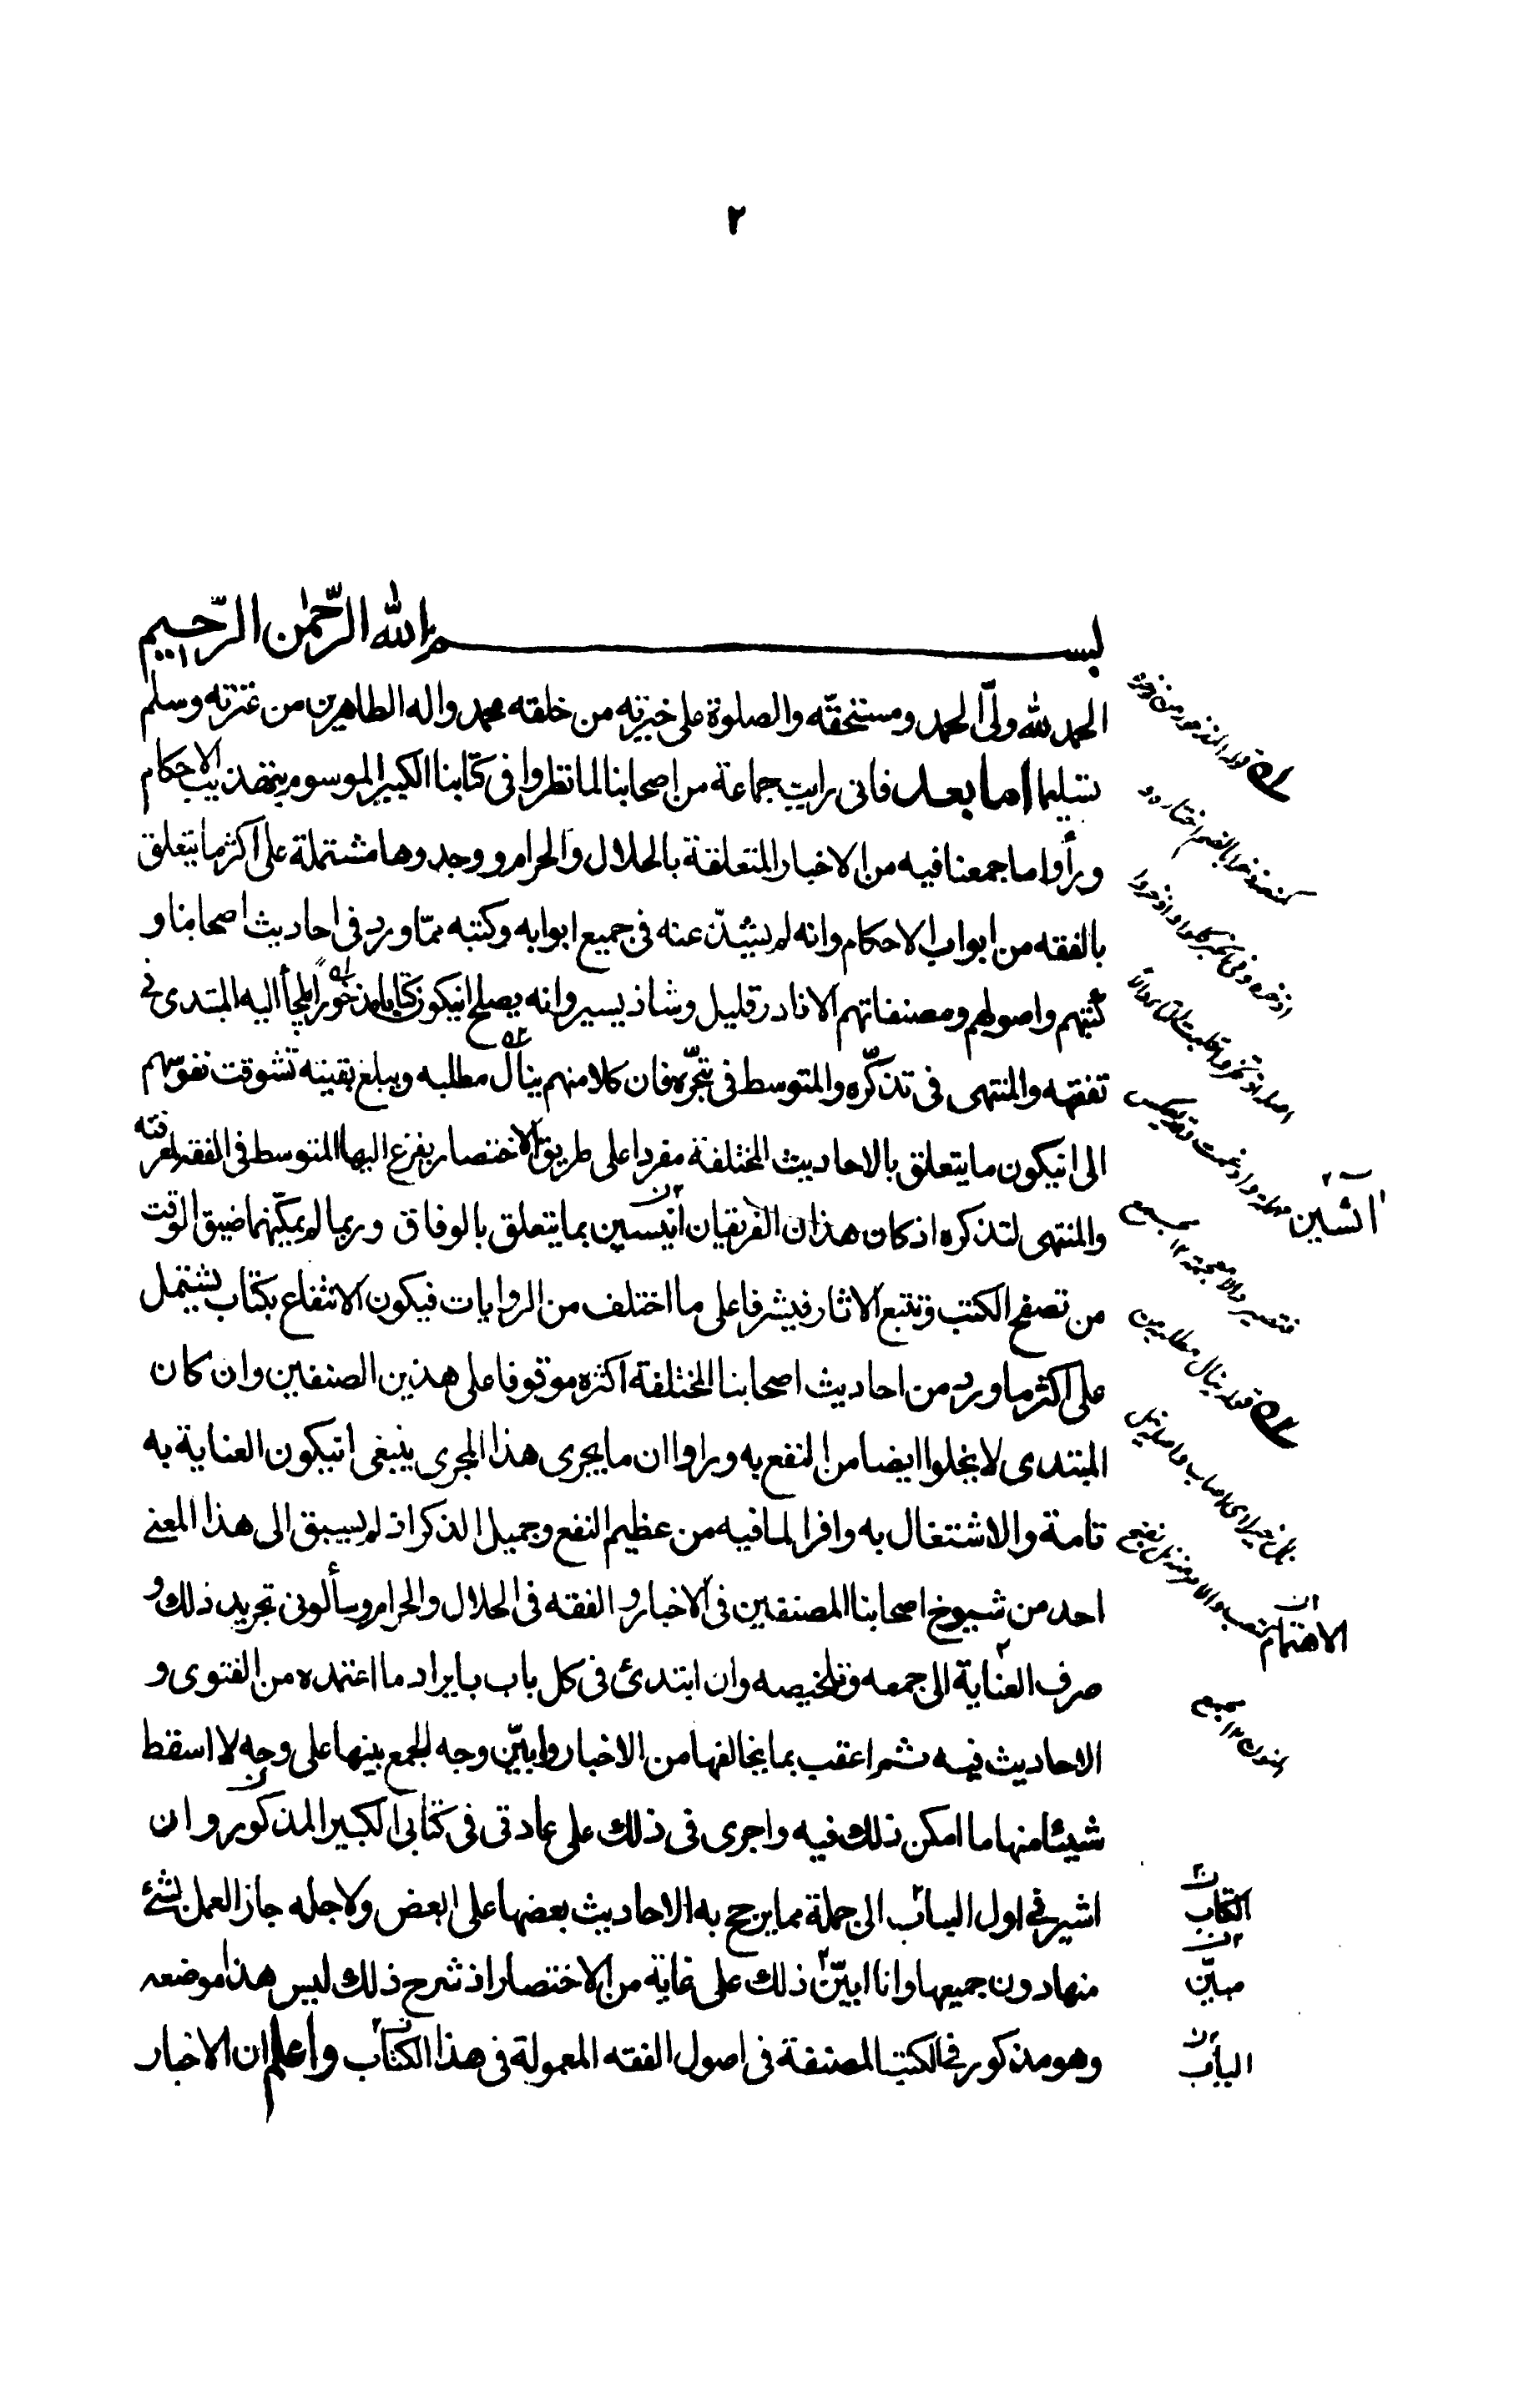 ٢
بسم الله الرّحمٰن الرّحيم
الحمد لله ولىّ الحمد ومستحقّه والصلوة على خيرته من خلقه محمد واله الطاهرين من عترته وسلم
تسليما اما بعد فانى رايت جماعة من اصحابنا لما نظروا فى كتابنا الكبير الموسوم بتهذيب الاحكام
ورأوا ما جمعنا فيه من الاخبار المتعلقة بالحلال والحرام ووجدوها مشتملة على اكثر ما يتعلق
بالفقه من ابواب الاحكام وانه لم يشذّ عنه فى جميع ابوابه وكتبه ممّا ورد فى احاديث اصحابنا و
كتبهم واصولهم ومصنفاتهم الا نادر قليل وشاذ يسير وانه يصلح انيكون كتابا مذخورا يلجأ اليه المبتدى فى
تفقهه والمنتهى فى تذكّره والمتوسط فى تبحّره فان كلا منهم ينال مطلبه ويبلغ بغيته تشوقت نفوسهم
الى انيكون ما يتعلق بالاحاديث المختلفة مفردا على طريق الاختصار يفزع اليها المتوسط فى الفقه لمعرفته
والمنتهى لتذكره اذ كان هذان الفريقان انيسين بما يتعلق بالوفاق وربما لم يمكّنهما ضيق الوقت
من تصفح الكتب وتتبع الاثار فيشرفا على ما اختلف من الروايات فيكون الانتفاع بكتاب يشتمل
على اكثر ما ورد من احاديث اصحابنا المختلفة اكثره موقوفا على هذين الصنفين وان كان
المبتدى لا يخلوا ايضا من النفع به وراوا ان ما يجرى هذا المجرى ينبغى انيكون العناية به
تامة والاشتغال به وافرا لما فيه من عظيم النفع وجميل الذكر اذ لم يسبق الى هذا المعنى
احد من شيوخ اصحابنا المصنفين فى الاخبار والفقه فى الحلال والحرام وسألونى تجريد ذلك و
صرف العناية الى جمعه وتلخيصه وان ابتدئ فى كل باب بايراد ما اعتمده من الفتوى و
الاحاديث فيه ثم اعقب بما يخالفها من الاخبار وابيّن وجه الجمع بينها على وجه لا اسقط
شيئا منها ما امكن ذلك فيه واجرى فى ذلك على عادتى فى كتابى الكبير المذكور وان
اشير فى اول الباب الى جملة مما يرجح به الاحاديث بعضها على البعض ولاجله جاز العمل بشئ
منها دون جميعها وانا ابيّن ذلك على غاية من الاختصار اذ شرح ذلك ليس هذا موضعه
وهو مذكور فى الكتب المصنفة فى اصول الفقه المعمولة فى هذا الكتاب واعلم ان الاخبار
آنسين
الاهتمام
الكتاب
مبيّن
الباب